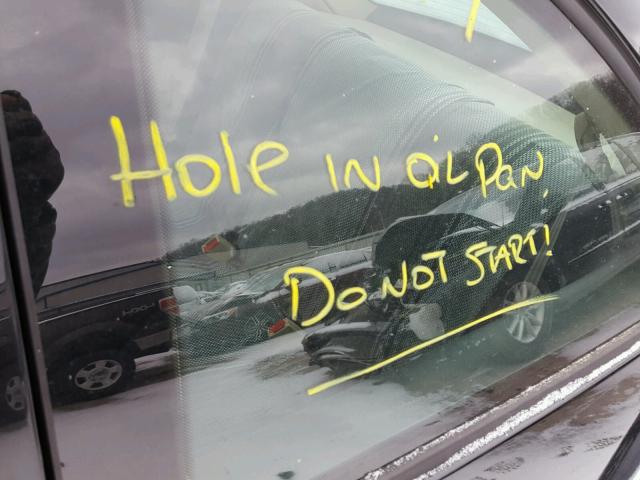 Hole IN OIL Pan
Do NOT START!